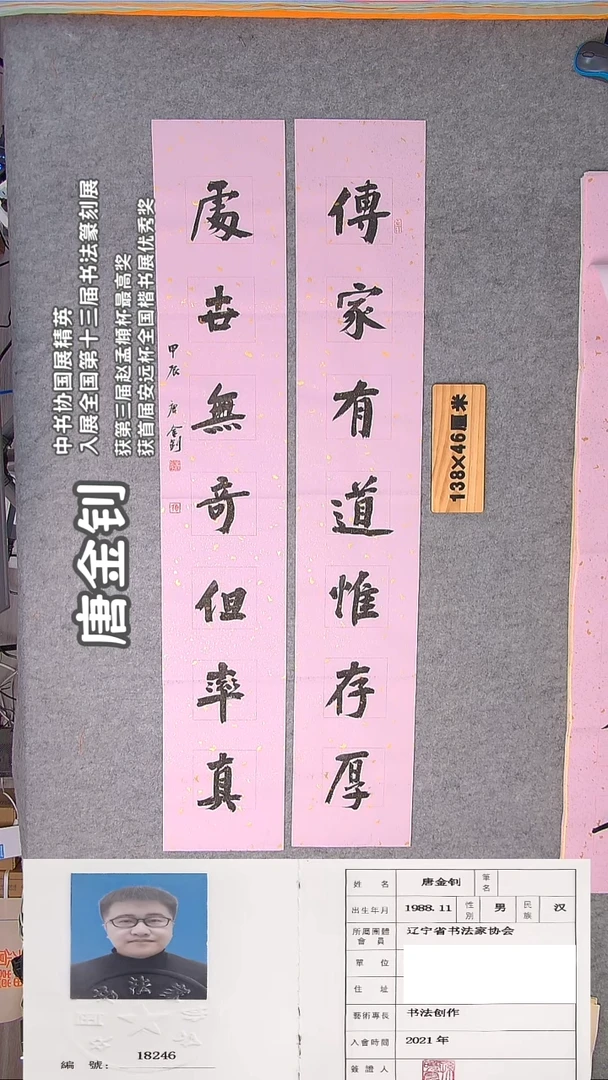 傳家有道惟存厚
處世無奇但率真
甲辰 唐金釗
138×46厘米
中书协国展精英
入展全国第十三届书法篆刻展
获第三届赵孟頫杯最高奖
获首届安远杯全国楷书展优秀奖
唐金钊
編 號: 18246
姓 名 唐金钊 筆名
出生年月 1988.11 性別 男 民族 汉
所屬團體會員 辽宁省书法家协会
單 位
住 址
藝術專長 书法创作
入會時間 2021 年
簽證人